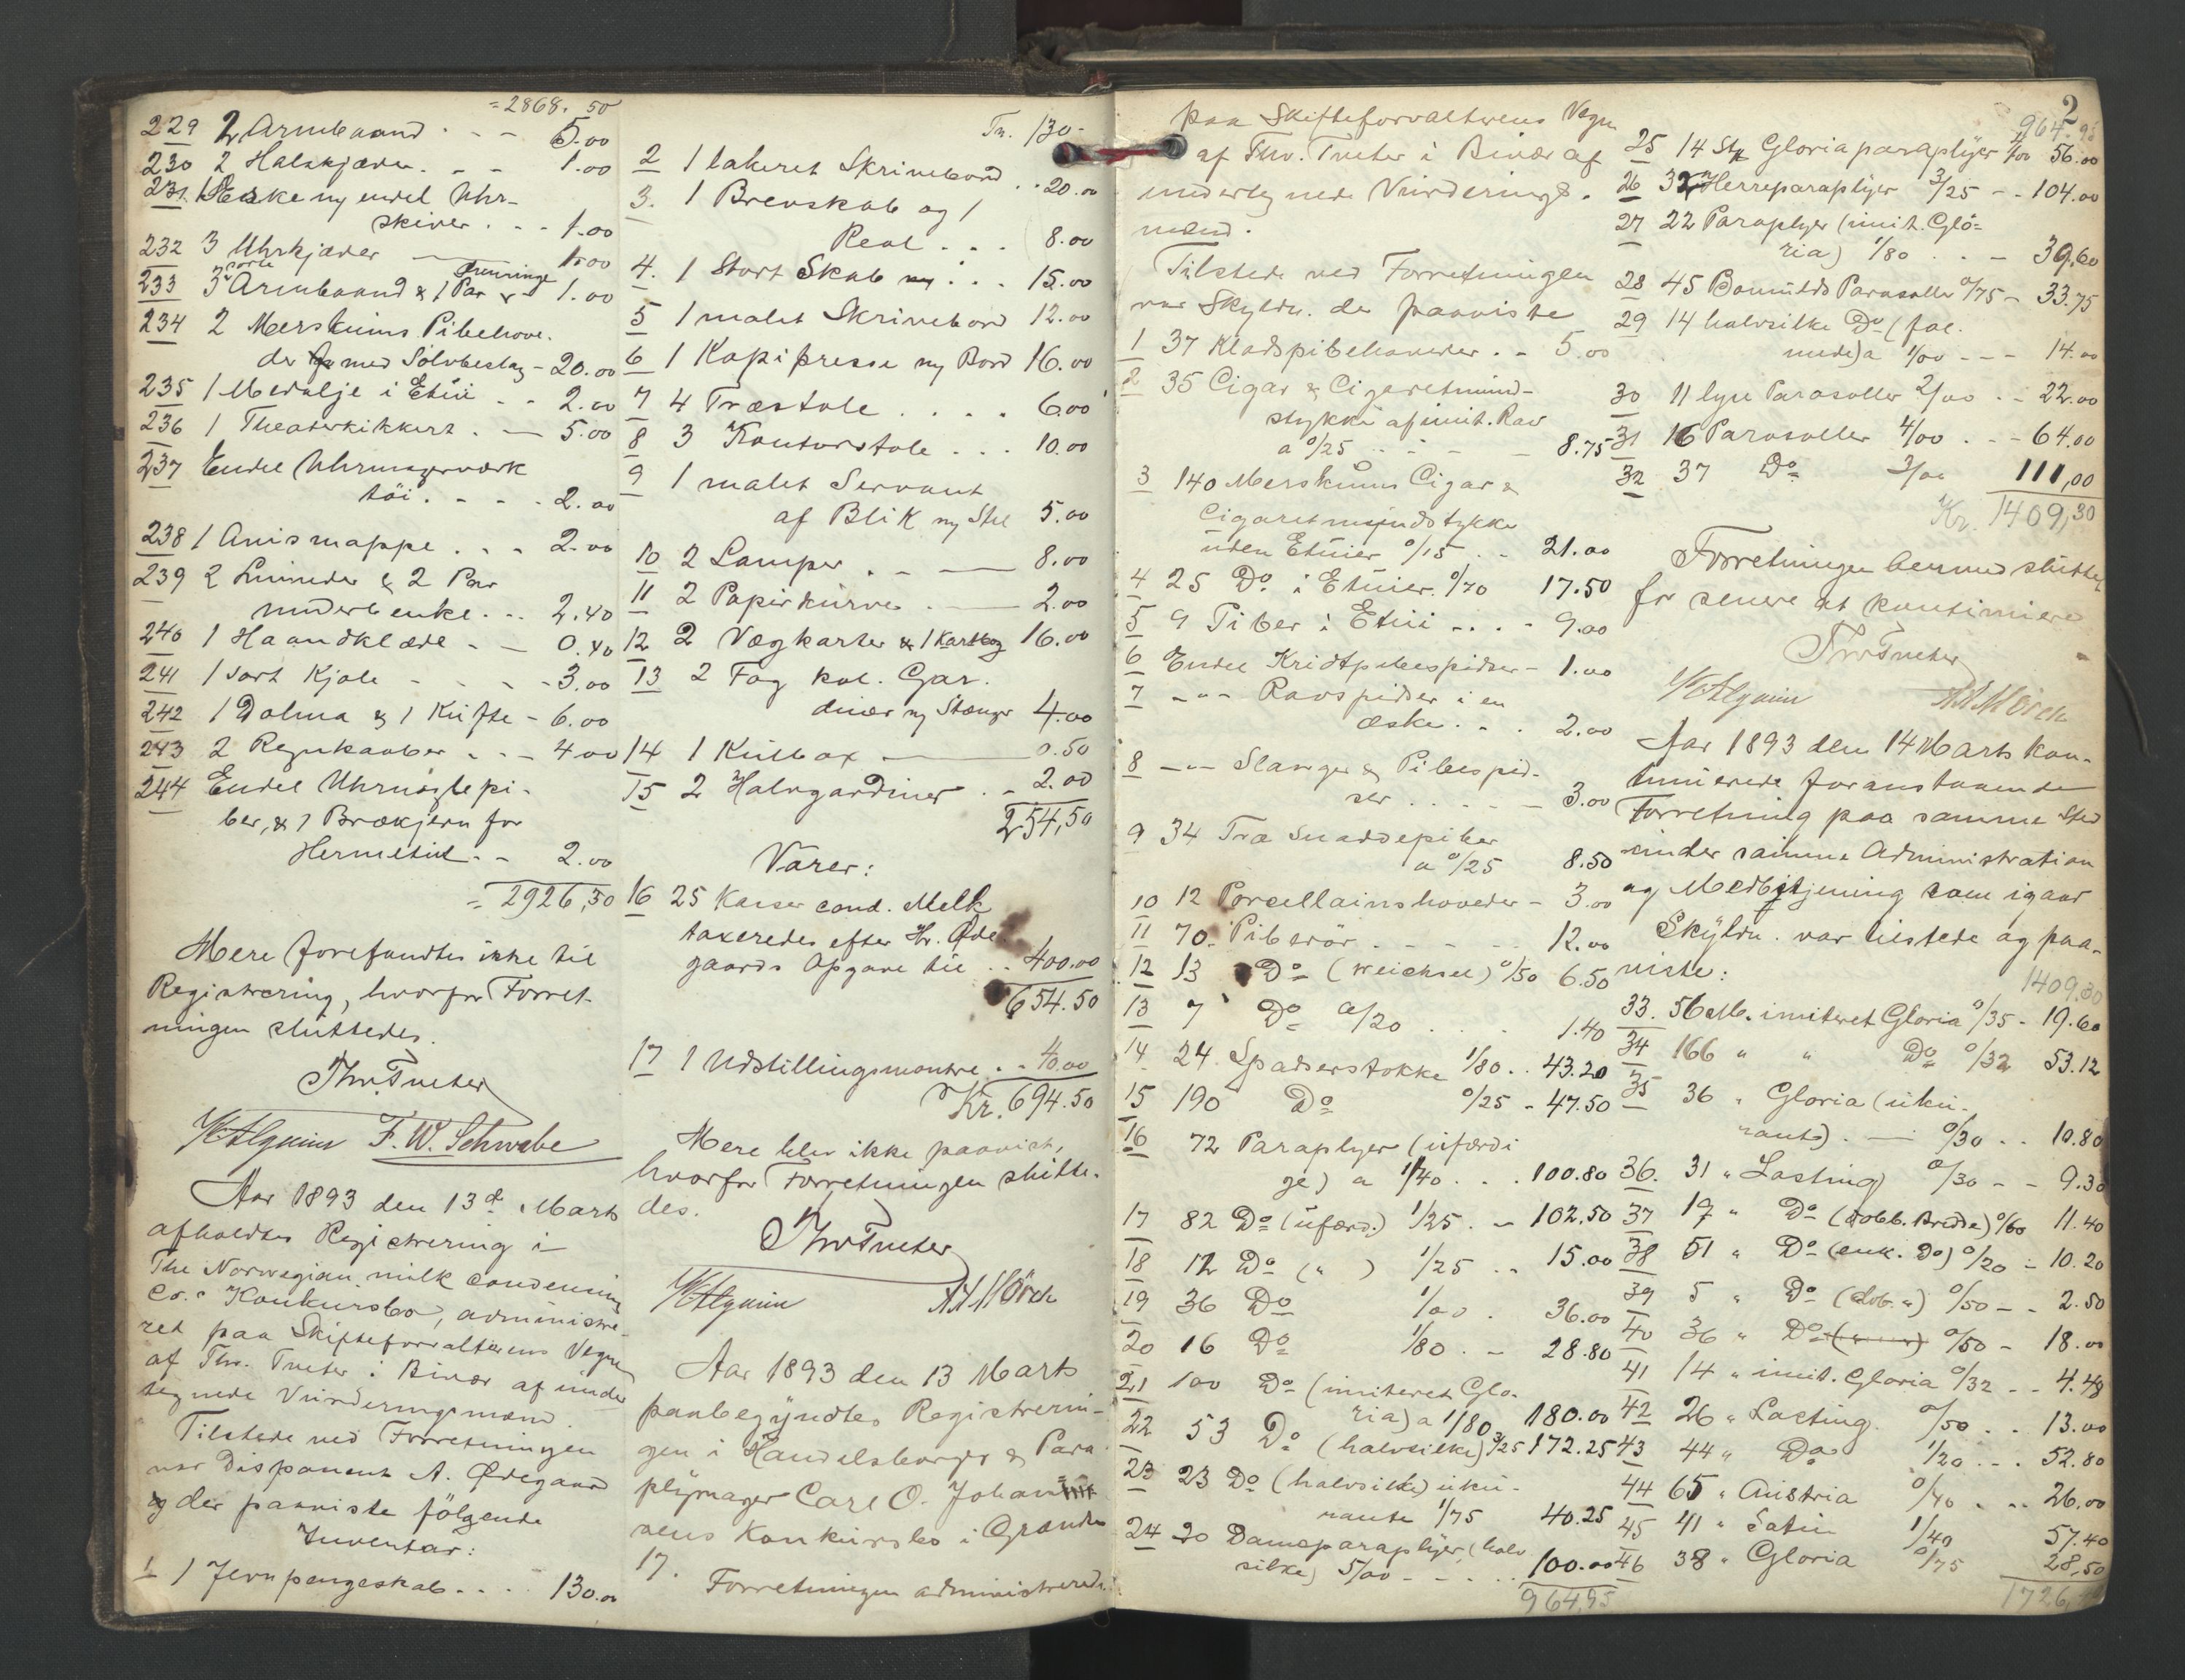 = 2868. 50
229 2 Armbaand . - - 5.00
230 2 Halskjæder . - - 1.00
231 1 Æske m/ endel Uhr-
skiver . . - 1.00
232 3 Uhrkjæder — 1.00
233 3 sorte Armbaand & 1 Par Øreringe - 1.00
234 2 Merskums Pibehove.
der med Sølvbeslag - 20.00
235 1 Medalje i Etüi - - 2.00
236 1 Theaterkikkert . — 5.00
237 Endel Uhrmagerværk
töi . - - - 2.00
238 1 Avismappe . . - 2.00
239 2 Linneder & 2 Par
underbenke . - - 2.40
240 1 Haandklæde - — 0.40
241 1 sort Kjole - - - - 3.00
242 1 Dolma & 1 Küfte - 6.00
243 2 Regnkaaber . - - 4.00
244 Endel Uhrnøgle pi-
ber, & 1 Brækjern for
Hermetik . - 2.00
= 2926,30
Mere forefandtes ikke til
Registrering, hvorfor Forret-
ningen sluttedes.
Thv. Tveter
F. W. Schwabe
Aar 1893 den 13de Marts
afholdtes Registrering i
The Norwegian milk condensing
Co.s Konkursbo, administre-
ret paa Skifteforvalterens Vegne
af Thv. Tveter i Bivær af under
tegnede Vurderingsmænd.
Tilstede ved Forretningen
var Disponent A. Ødegaard
og der paaviste følgende
Inventar:
1 1 Jernpengeskab . . . 130.00
Tr. 130-
2 1 lakeret Skrivebord . . 20.00
3. 1 Brevskab og 1
Reol . . . 8.00
4. 1 Stort Skab . . . 15.00
5 1 malet Skrivebord 12.00
6 1 Kopipresse m/ Bord 16.00
7 4 Træstole . . . . 6.00
8 3 Kontorstole . . . 10.00
9 1 malet Servant
af Blik m/ Stel 5.00
10 2 Lamper . - — 8.00
11 2 Papirkurve . — 2.00
12 2 Vægkarter & 1 Kartbog 16.00
13 2 Fag kul. Gar.
diner m/ Stænger 4.00
14 1 Kulbox — 0.50
15 2 Halvgardiner . - 2.00
254,50
Varer:
16 25 Kasser cond. Melk
taxeredes efter Hr. Øde
gaards Opgave til . . 400.00
654.50
17 1 Udstillingsmontre . . 40.00
Kr. 694.50
Mere blev ikke paavist,
hvorfor Forretningen slutte.
des.
Thv. Tveter
A. A. Mörch
Aar 1893 den 13 Marts
paabegyndtes Registrerin-
gen i Handelsborger & Para
plymager Carl O. Johan
sens Konkursbo i Grænden
17.
Forretningen administreredes
paa Skifteforvalterens Vegne
af Thv. Tveter i Bivær af
undertegnede Vurderings-
mænd.
Tilstede ved Forretningen
var Skyldn. der paaviste
1 37 Kladspibehoveder . - 5.00
2 35 Cigar & Cigaretmund-
stykke af imit. Rav
a 0/25 . - - - 8.75
3 140 Merskums Cigar &
Cigaretmundstykke
uden Etüier 0/15 . - 21.00
4 25 Do i Etüier. 0/70 17.50
5 9 Piber i Etüi - . . - 9.00
6 Endel Kridtpibespidser - 1.00
7 - " - Ravspidser i en
æske . - . 2.00
8 - " - Slanger & Pibespid-
ser . . - - - 3.00
9 34 Træ Snaddepiber
a 0/25 8.50
10 12 Porcellainshoveder - 3.00
11 70. Piberör . - - - - 12.00
12 13 Do (weichsel) 0/50 6.50
13 7 Do a/20 . . . 1.40
14 24. Spadserstokke 1/80 . . 43.20
15 190 Do 0/25 - 47.50
16 72 Paraplyer (ufærdi
ge) a 1/40 . . . 100.80
17 82 Do (ufærd.) 1/25 . - 102.50
18 12 Do ( " ) 1/25 . . 15.00
19 36 Do 1/00 . 36.00
20 16 Do 1/80 . - 28.80
21 100 Do (imiteret Glo-
ria) a 1/80 180.00
22 53 Do (halvsilke) 3/25 172.25
23 23 Do (halvsilke) uku-
rante 1/75 40.25
24 20 Dameparaplyer (halv
silke) 5/00 - - - . . 100.00
964.95
2
964.95
25 14 Stk Gloriaparaplyer 4/00 56.00
26 32 Herreparaplyer 3/25 - - 104.00
27 22 Paraplyer (imit. Glo-
ria) 1/80 . . - 39.60
28 45 Bomulds Parasoller 0/75 - 33.75
29 14 halvsilke Do (fal.
mede) a 1/00 - - - 14.00
30 11 lyse Parasoller 2/00 . - 22.00
31 16 Parasoller 4/00 . - - 64.00
32 37 Do 3/00 111,00
Kr. 1409,30
Forretningen hermed sluttet
for senere at kontinuere
Thv. Tveter
A. A. Mörch
Aar 1893 den 14 Marts kon-
tinuerede foranstaaende
Forretning paa samme Sted
under samme Administration
og Medbetjening som igaar
Skyldn. var tilstede og paa-
viste:
1409.30
33. 56 M. imiteret Gloria 0/35 - 19.60
34 166 " " Do 0/32 53.12
35 36 " Gloria (uku-
rante) . — 0/30 . . 10.80
36. 31 " Lasting 0/30 - - 9.30
37 19 " Do (dobb. Bredde) 0/60 11.40
38 51 " Do (enk. Do) 0/20 - 10.20
39 5 " Do (dob. ") 0/50 - - 2.50
40 36 " Do 0/50 - 18.00
41 14 " imit. Gloria 0/32 - - 4.48
42 26 " Lasting. 0/50 . . 13.00
43 44 " Do 1/20 . - . 52.80
44 65 " Austria 0/40 . . . 26.00
45 41 " Satin 1/40 57.40
46 38 " Gloria 0/75 28,50